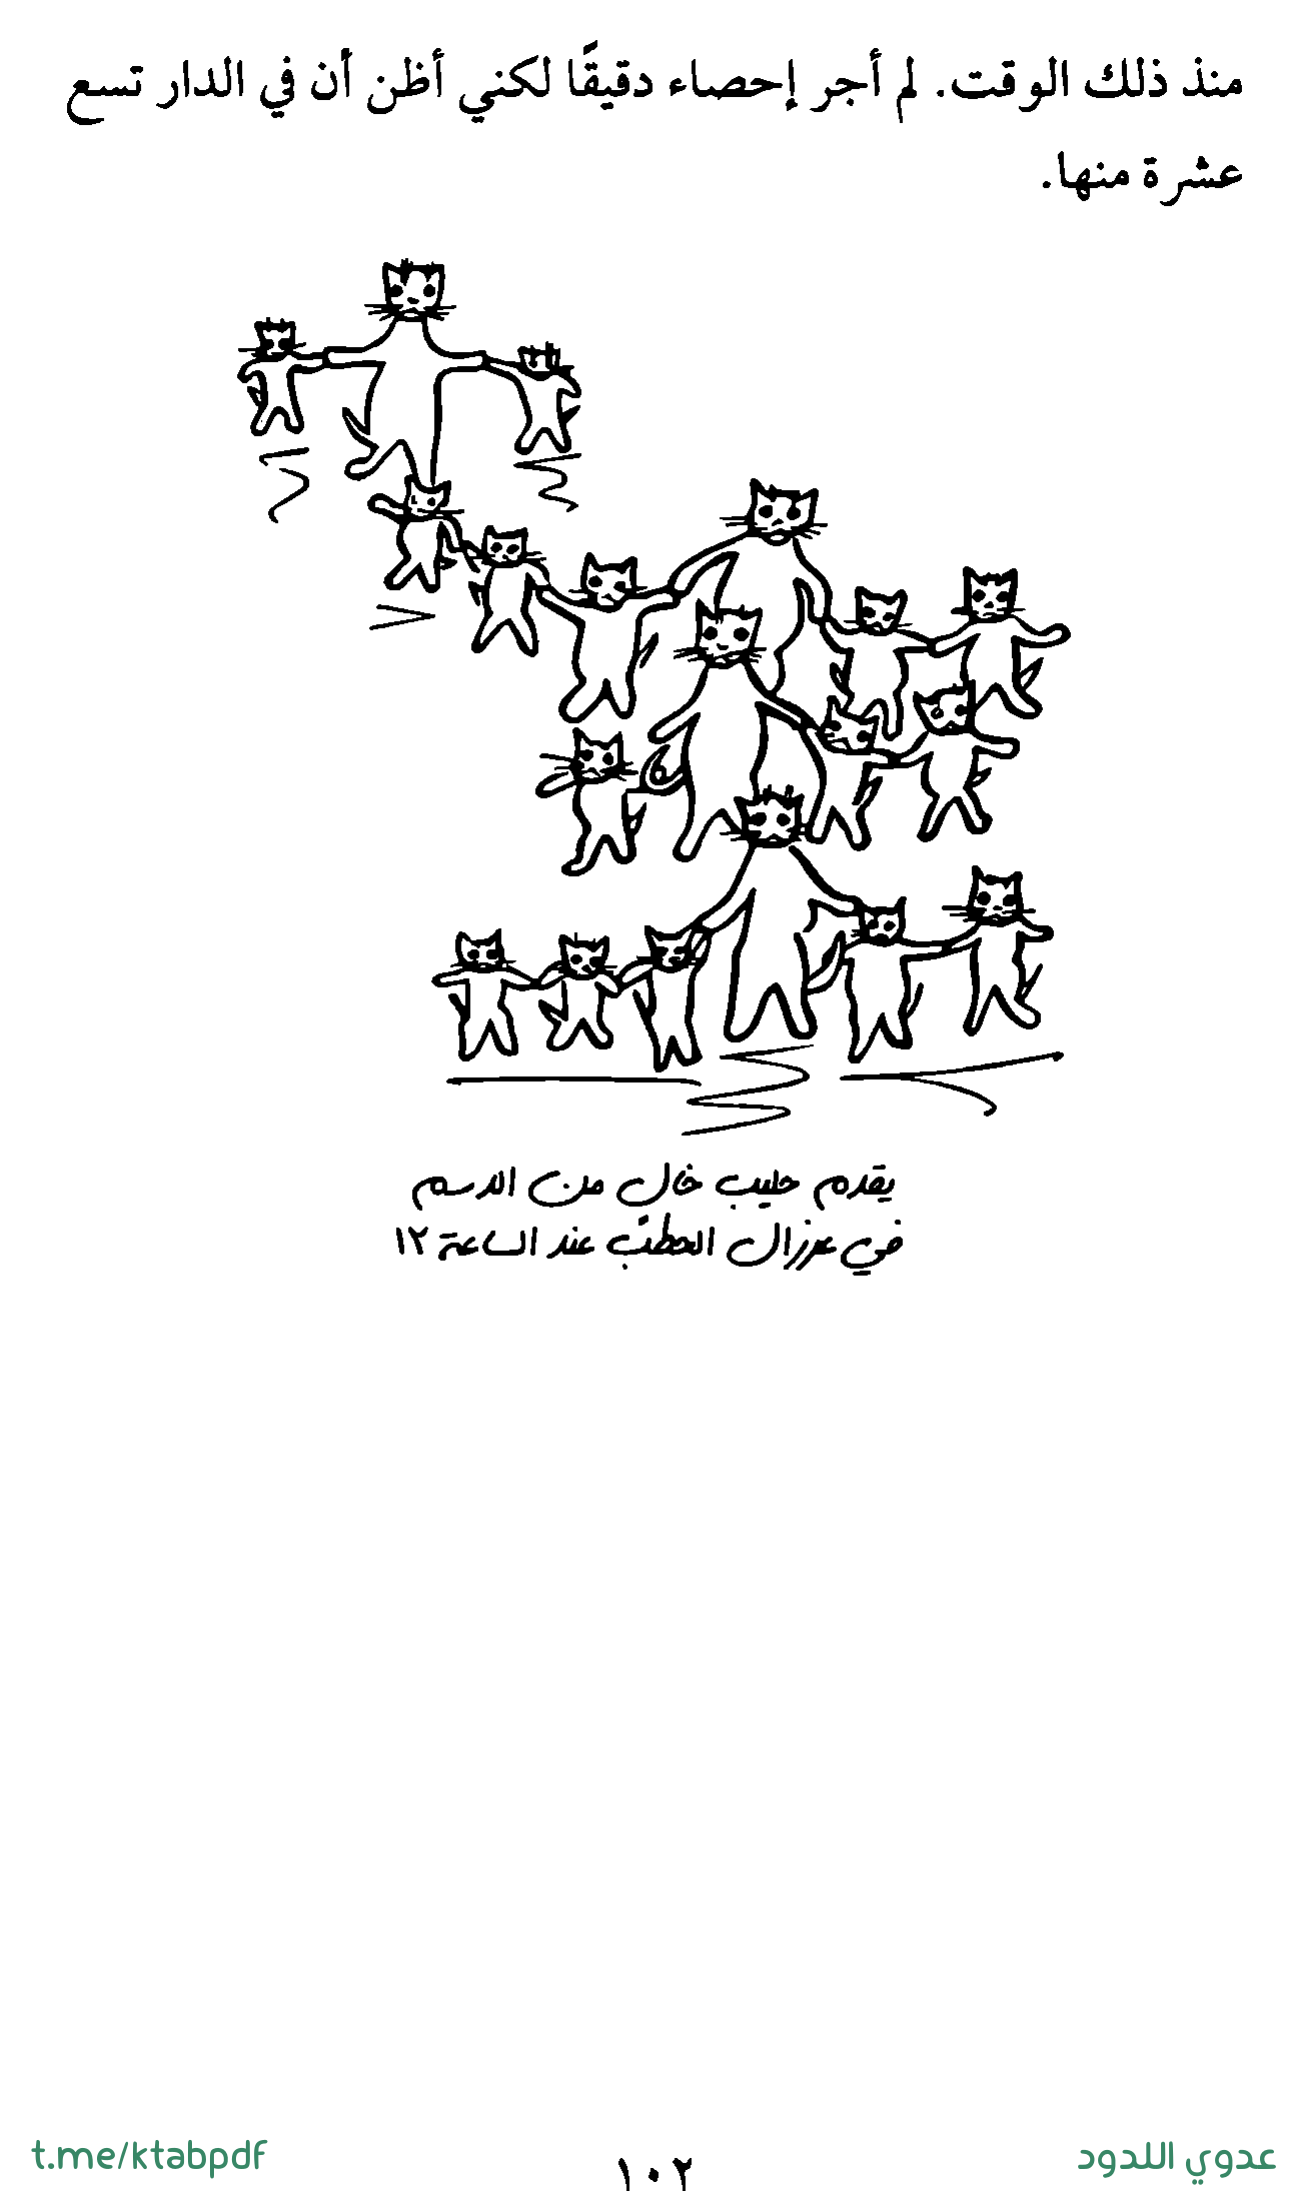 منذ ذلك الوقت. لم أجر إحصاء دقيقًا لكني أظن أن في الدار تسع
عشرة منها.
يقدم حليب خال من الدسم
في عرزال الحطب عند الساعة ١٢
عدوي اللدود
١٠٢
t.me/ktabpdf